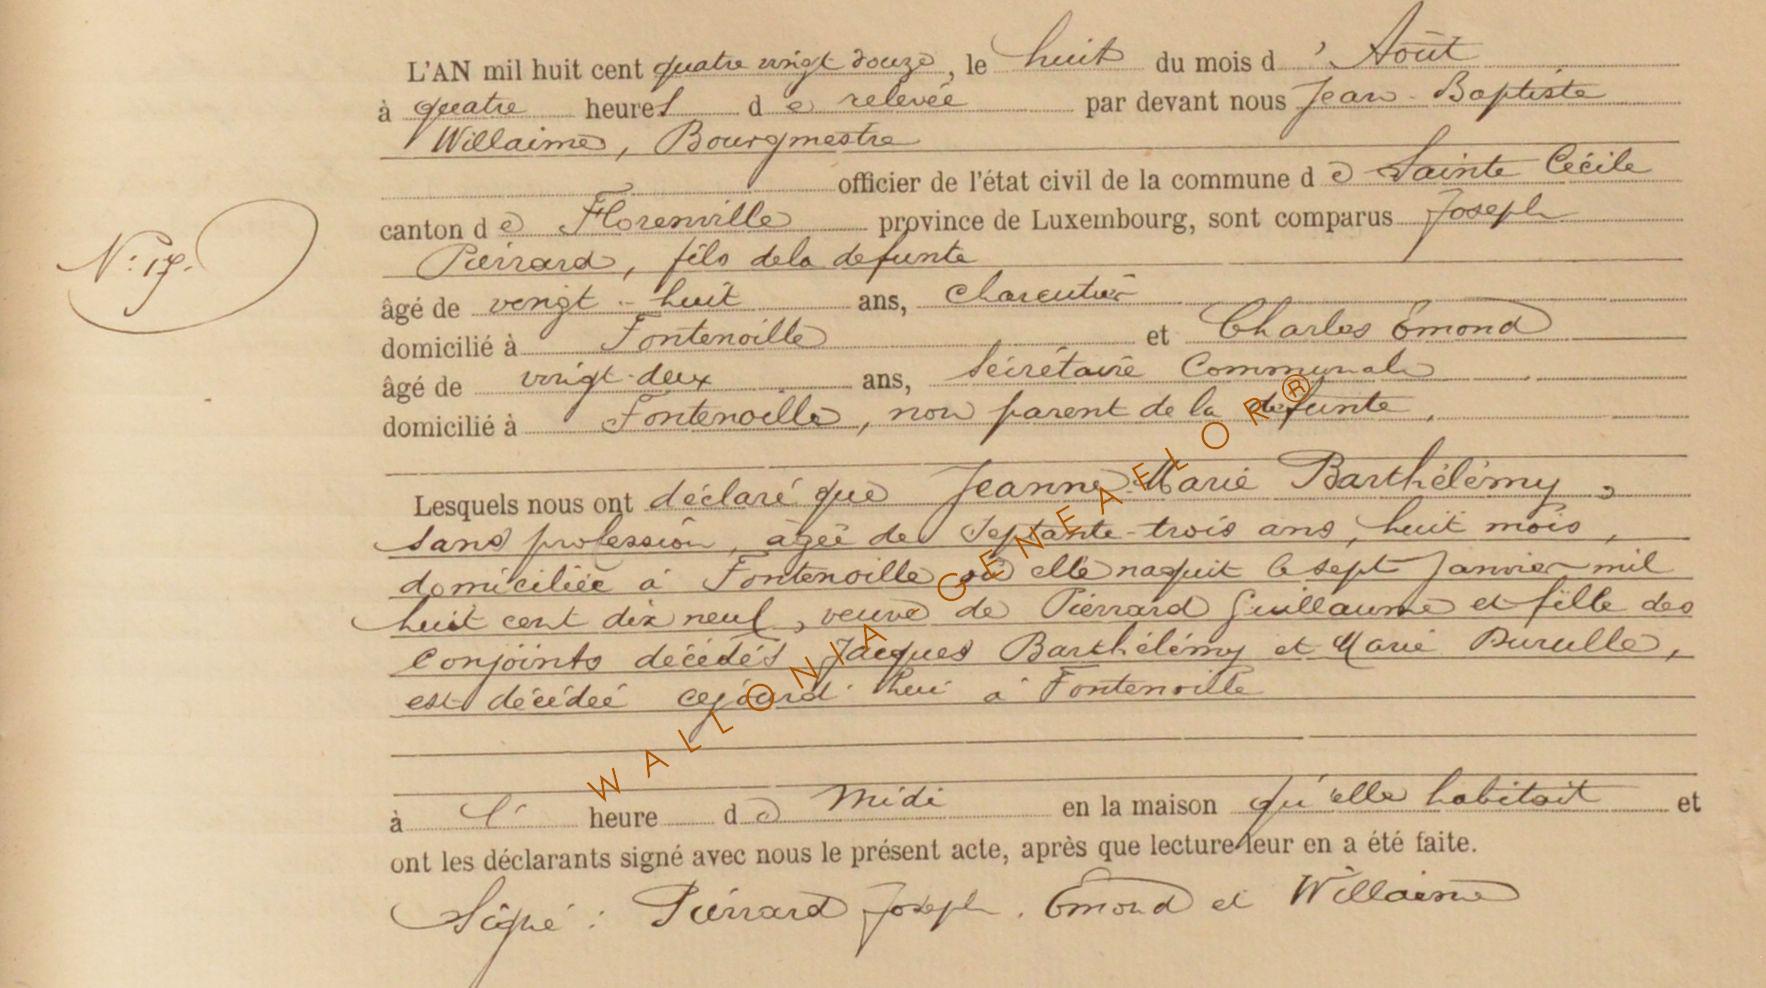 L'AN mil huit cent quatre vingt douze, le huit du mois d'Août
à quatre heures de relevée par devant nous Jean-Baptiste
Willaime, Bourgmestre
officier de l'état civil de la commune de Sainte Cécile
canton de Florenville province de Luxembourg, sont comparus Joseph
N° 17.
Piérrard, fils de la defunte
âgé de vingt-huit ans, charcutier
domicilié à Fontenoille et Charles Émond
âgé de vingt-deux ans, Sécrétaire Communale
domicilié à Fontenoille, non parent de la defunte.
Lesquels nous ont déclaré que Jeanne-Marie Barthélémy,
sans profession, agée de Septante-trois ans, huit mois,
domiciliée à Fontenoille où elle naquit le sept Janvier mil
huit cent dix neuf, veuve de Piérrard Guillaume et fille des
conjoints décédés Jacques Barthélémy et Marie,
est décédée cejourd'hui à Fontenoille
à l' heure de Midi en la maison qu'elle habitait et
ont les déclarants signé avec nous le présent acte, après que lecture leur en a été faite.
Signé : Piérrard Joseph. Émond et Willaime
WALLONIA GENEAELOR®